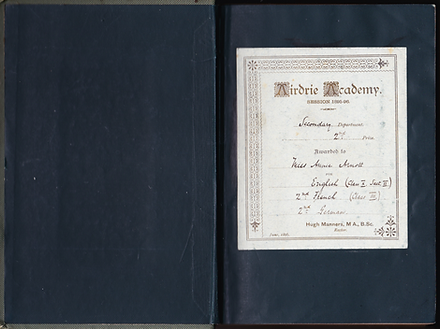 Airdrie Academy.
SESSION 1895-96.
Secondary Department
2nd Prize
Awarded to
Miss Annie Arnott
FOR
English (Class I Sect II)
2nd French (Class III)
2nd German
Hugh Manners, M.A., B.Sc.
Rector.
June, 1896.